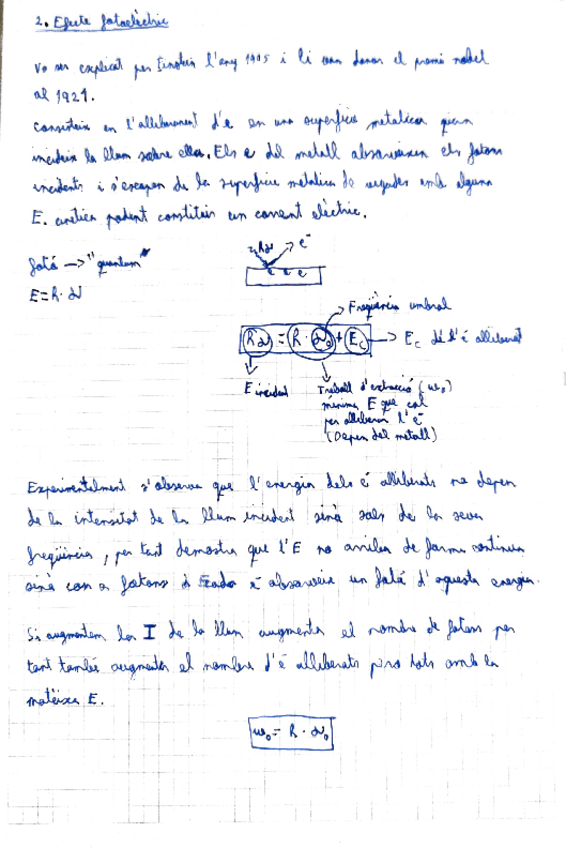 2. Efecte fotoelèctric
Va ser explicat per Einstein l'any 1905 i li van donar el premi nobel
al 1921.
Consisteix en l'alliberament d'e⁻ en una superfície metalica quan
incideix la llum sobre ella. Els e⁻ del metall absorveixen els fotons
incidents i s'escapen de la superfície metalica de vegades amb alguna
E. cinetica podent constituir un corrent elèctric.
fotó → "quantum"
E = h · ν
hν e⁻
e e e
Freqüència umbral
hν = h · ν₀ + Ec → Ec de l'e⁻ alliberat
E incident
Treball d'extracció (w₀)
mínima E que cal
per alliberar l'e⁻
(Depen del metall)
Experimentalment s'observa que l'energia dels e⁻ alliberats no depen
de la intensitat de la llum incident sinó sols de la seva
freqüència, per tant demostra que l'E no arriba de forma continua
sinó com a fotons i cada e⁻ absorveix un fotó d'aquesta energia.
Si augmentem la I de la llum augmenta el nombre de fotons per
tant també augmenta el nombre d'e⁻ alliberats però tots amb la
mateixa E.
w₀ = h · ν₀